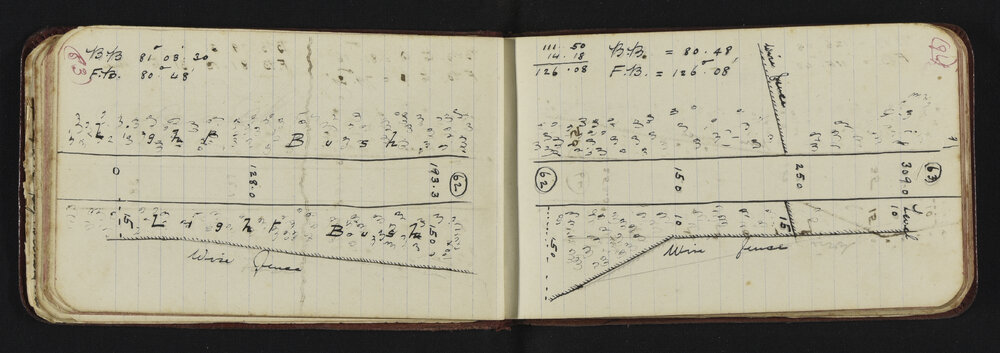 83
B.B 81° 08' 30
F.B. 80° 48'
Light Bush
0 128.0 193.3 62
5 Light Bush 50
Wire Fence
84
111 . 50
14 . 18
126 . 08
B.B. = 80 . 48
F.B. = 126° . 08'
Wire Fence
62 150 250 309.0 63
50 10 15 10 Level
Wire Fence